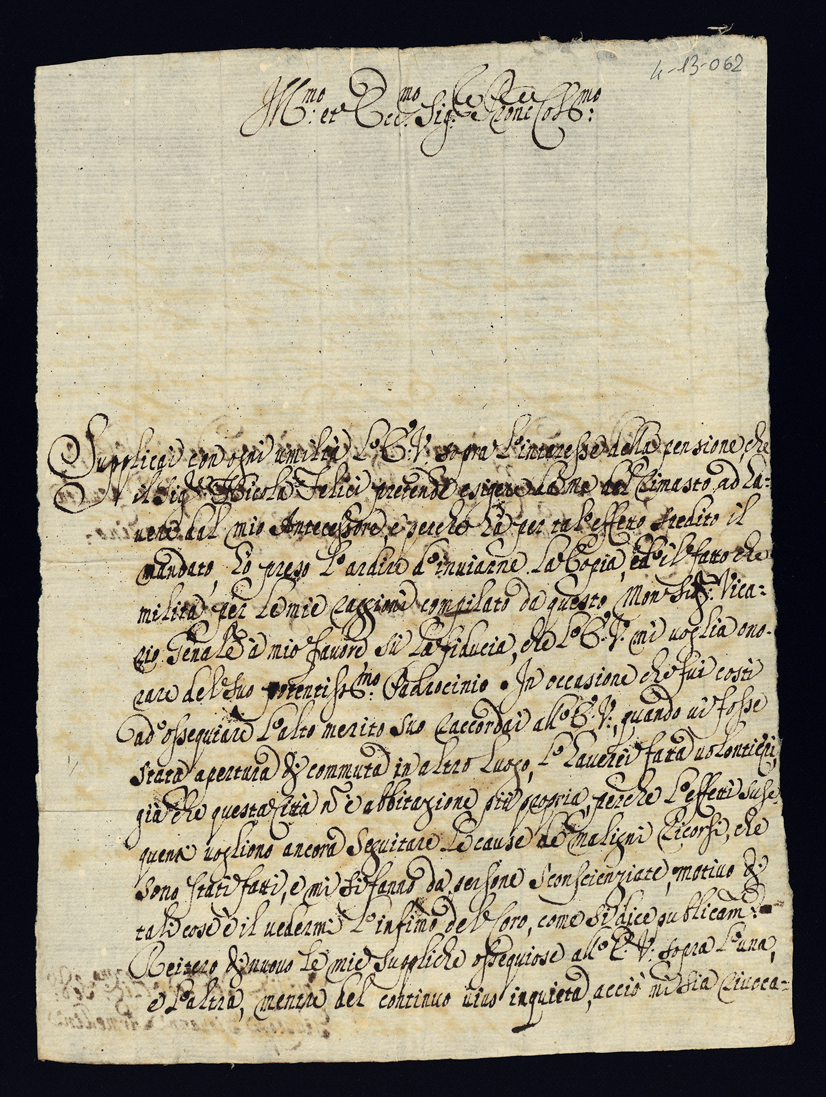 4-13-062
Ill.mo et Ecc.mo Sig.re Prone Coll.mo
Supplicai con ogni umiltà l'E:V: sopra l'interesse della pensione che
il Sig.r Nicola Felici pretende esigere da me del rimasto ad ha=
vere dal mio Antecessore, e perche hà per tal'effetto spedito il
mandato, hò preso l'ardire d'inviarne la Copia, ed il fatto che
milita per le mie raggioni compilato da questo Mon Sig.r Vica=
rio Gen'ale à mio favore sù la fiducia, che l'E:V: mi voglia ono=
rare del suo potentiss.mo Padrocinio. In occasione che fui costi
ad ossequiare l'alto merito suo raccordai all'E:V:, quando vi fosse
stata apertura di commuta in altro luogo, l'haverei fatta volontieri,
già che questa Città n è abbitazione più propria, perche l'effetti susse=
quenti vogliono ancora seguitare le cause de maligni ricorsi, che
sono stati fatti, e mi si fanno da persone sconscienziate, motivo di
tali cose è il vedermi l'infimo del Coro, come si dice publicam.te
Reitero di nuovo le mie suppliche ossequiose all'E:V: sopra l'una,
e l'altra, mentre del continuo vivo inquieta, acciò mi sia